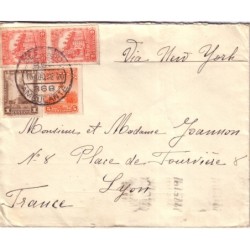 Via New York
Monsieur et Madame Joannon
N° 8 Place de Fourvière 8
Lyon
France